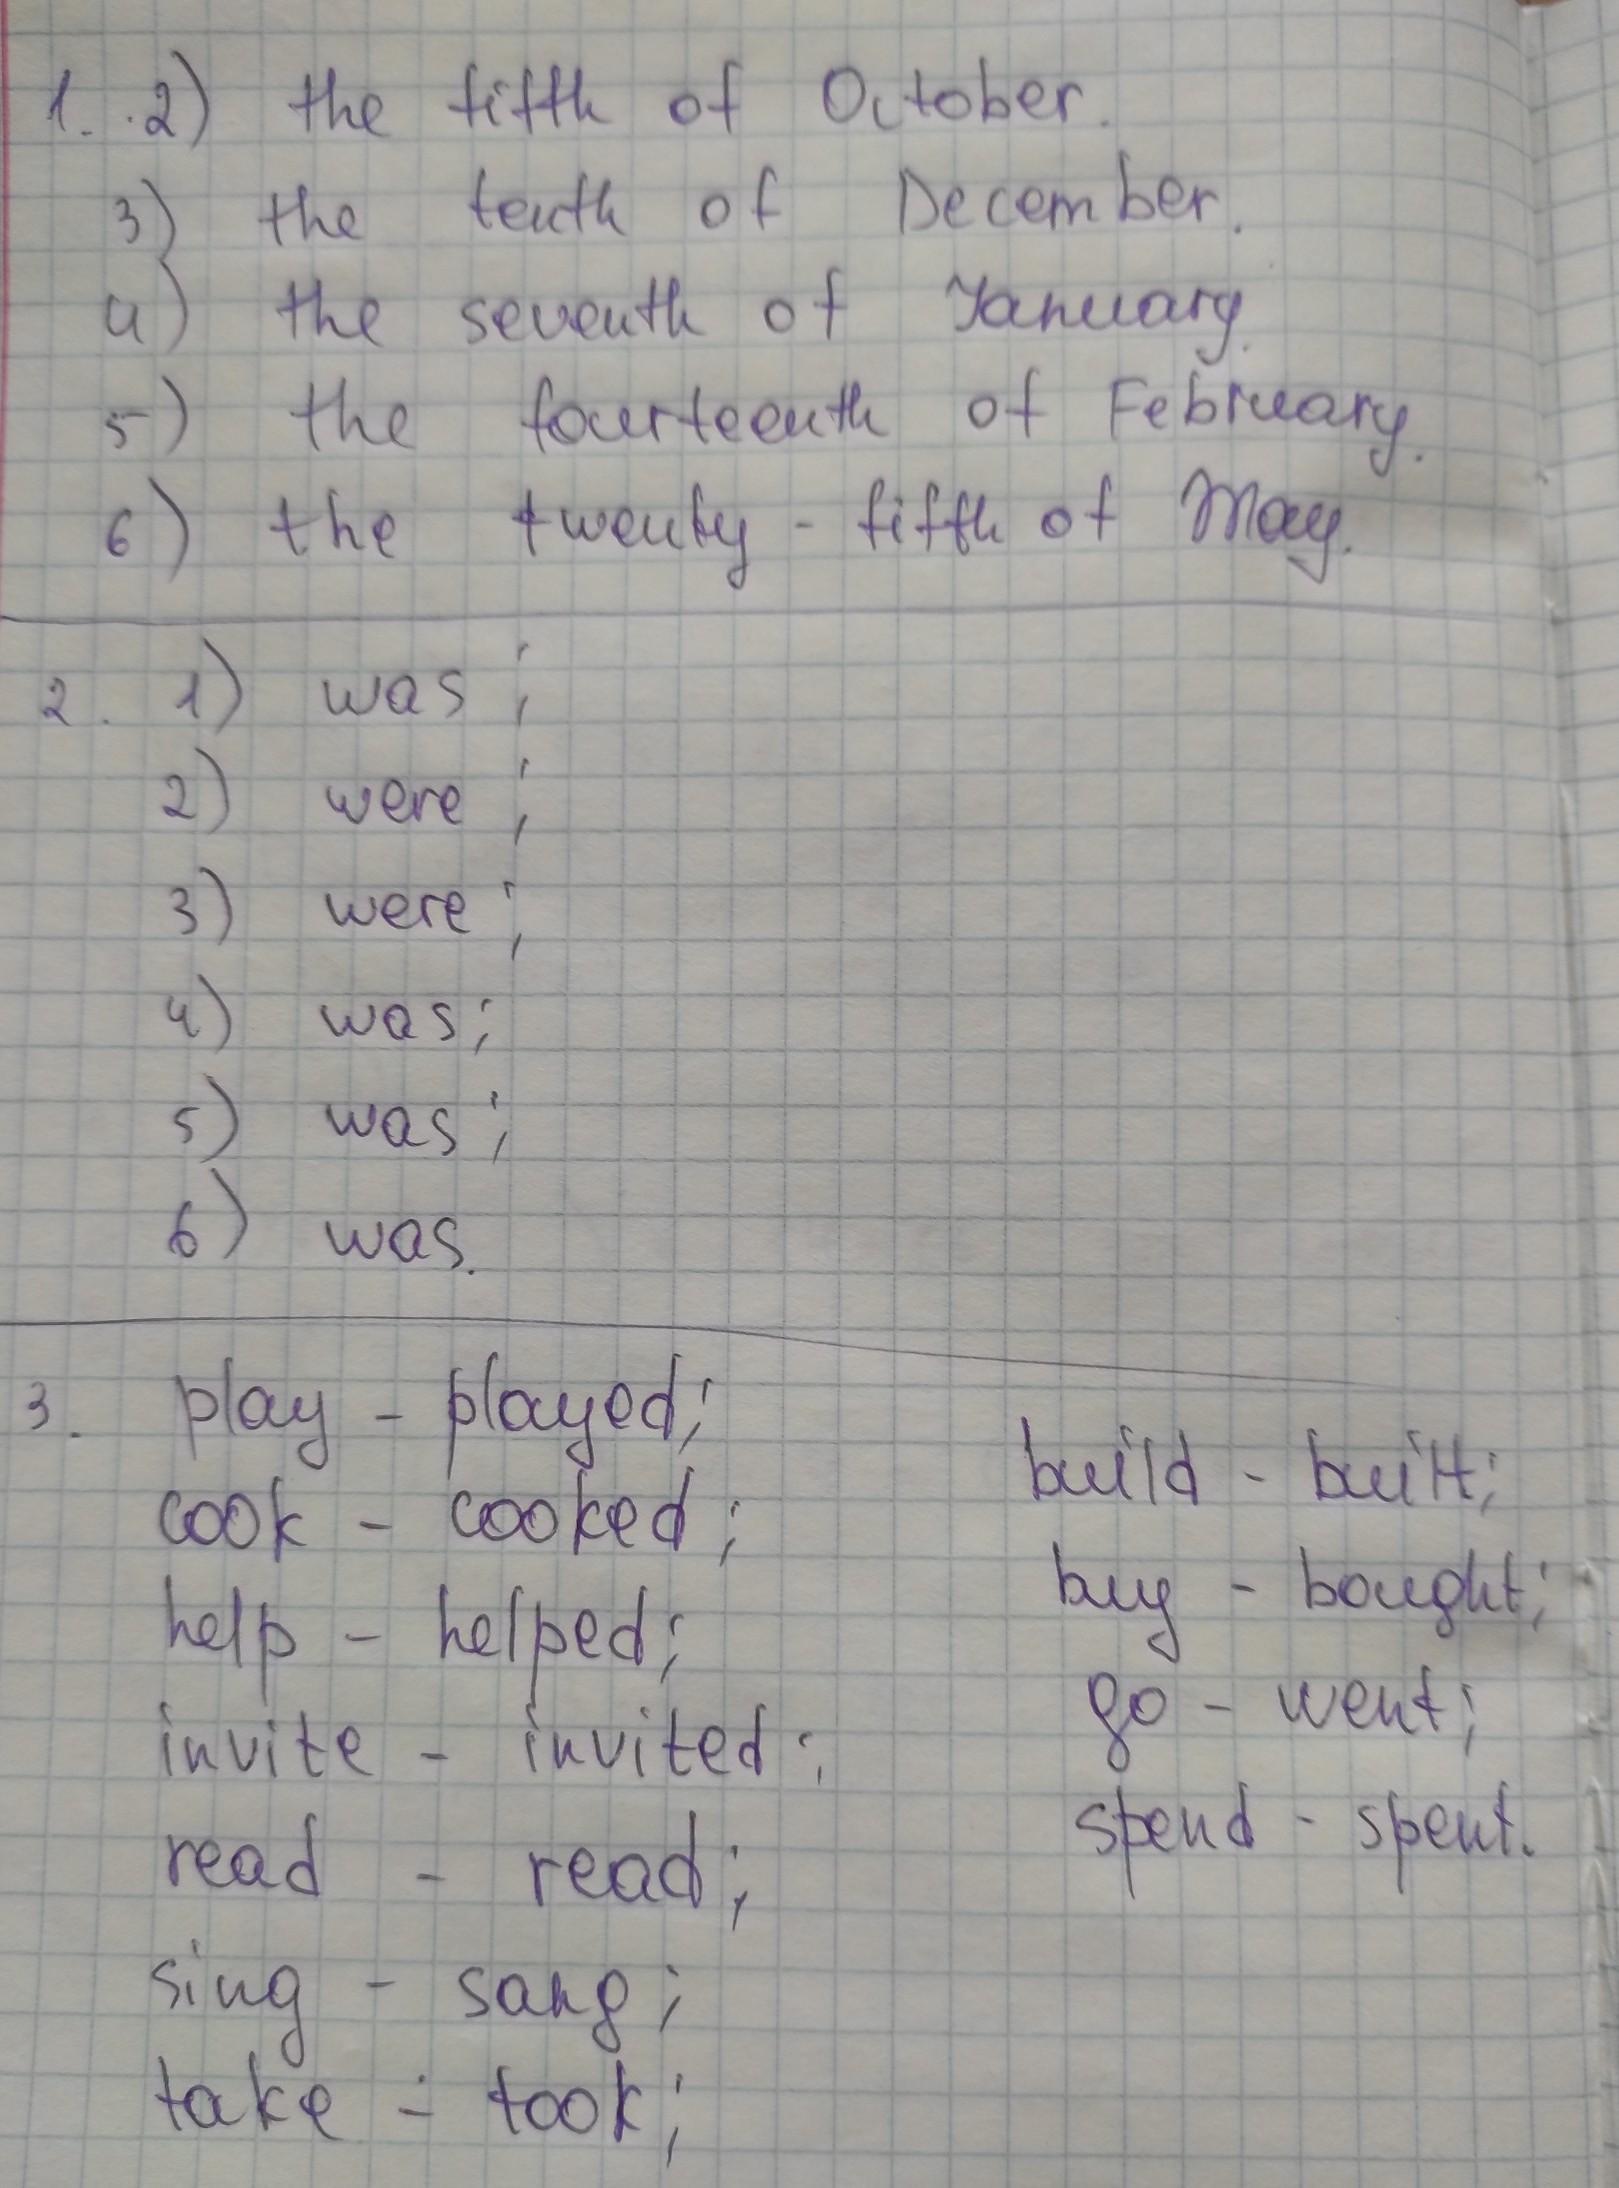 1. 2) the fifth of October.
3) the tenth of December.
4) the seventh of January.
5) the fourteenth of February.
6) the twenty - fifth of May.
2. 1) was ;
2) were ;
3) were ;
4) was ;
5) was ;
6) was.
3. play - played;
cook - cooked ;
help - helped;
invite - invited ;
read - read;
sing - sang ;
take - took;
build - built;
buy - bought;
go - went;
spend - spent.